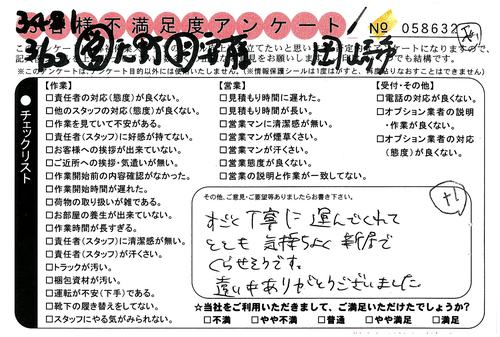 お客様不満足度アンケート
№ 058632
【作業】
□責任者の対応(態度)が良くない。
□他のスタッフの対応(態度)が良くない。
□作業を見ていて不安がある。
□責任者(スタッフ)に好感が持てない。
□お客様への挨拶が出来ていない。
□ご近所への挨拶・気遣いが無い。
□作業開始前の内容確認がなかった。
□作業開始時間が遅れた。
□荷物の取り扱いが雑である。
□お部屋の養生が出来ていない。
□作業時間が長すぎる。
□責任者(スタッフ)に清潔感が無い。
□責任者(スタッフ)が汗くさい。
□トラックが汚い。
□梱包資材が汚い。
□運転が不安(下手)である。
□靴下の履き替えをしてない。
□スタッフにやる気がみられない。
【営業】
□見積もり時間に遅れた。
□見積もり時間が長い。
□営業マンに清潔感が無い。
□営業マンが煙草くさい。
□営業マンが汗くさい。
□営業態度が良くない。
□営業の説明と作業が一致してない。
【受付・その他】
□電話の対応が良くない。
□オプション業者の説明
・作業が良くない。
□オプション業者の対応
(態度)が良くない。
●チェックリスト
その他、ご意見・ご要望等ありましたらお書き下さい。
すごく丁寧に運んでくれて
とても気持ちよく新居で
くらせそうです。
遠い中ありがとうございました
☆当社をご利用いただきまして、ご満足いただけたでしょうか?
□不満 □やや不満 □普通 □やや満足 □満足